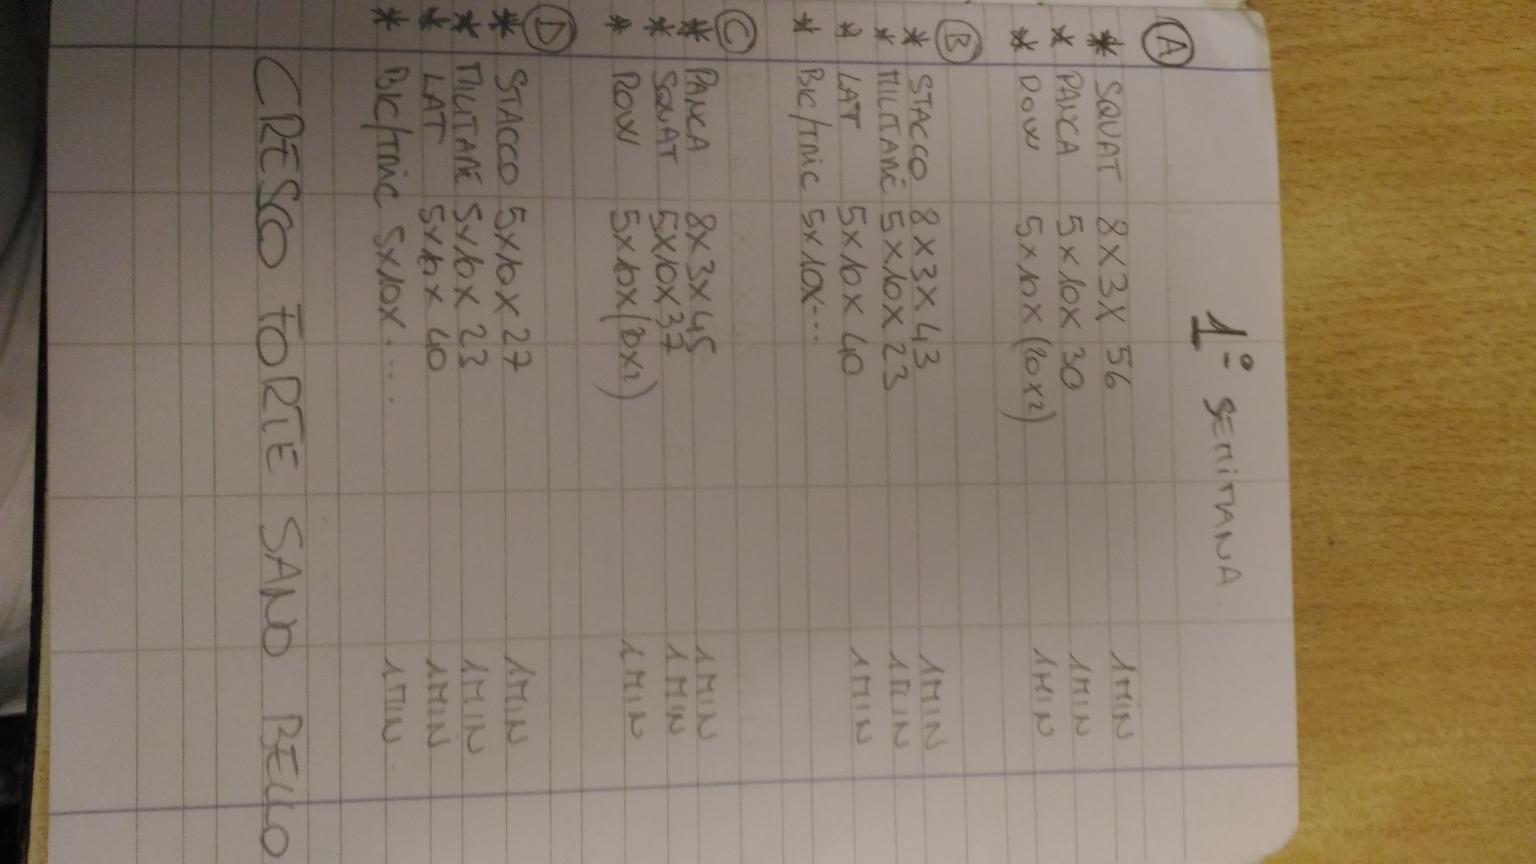 1° SETTIMANA.
A
* SQUAT 8x3x56 1MIN
* PANCA 5x10x30 1MIN
* ROW 5x10x(10x2) 1MIN
B
* STACCO 8x3x43 1MIN
* MILITARE 5x10x23 1MIN
* LAT 5x10x40 1MIN
* BIC/TRIC 5x10x...
C
* PANCA 8x3x45 1MIN
* SQUAT 5x10x37 1MIN
* ROW 5x10x(10x2) 1MIN
D
* STACCO 5x10x27 1MIN
* MILITARE 5x10x23 1MIN
* LAT 5x10x40 1MIN
* BIC/TRIC 5x10x.... 1MIN
CRESCO FORTE SANO BELLO